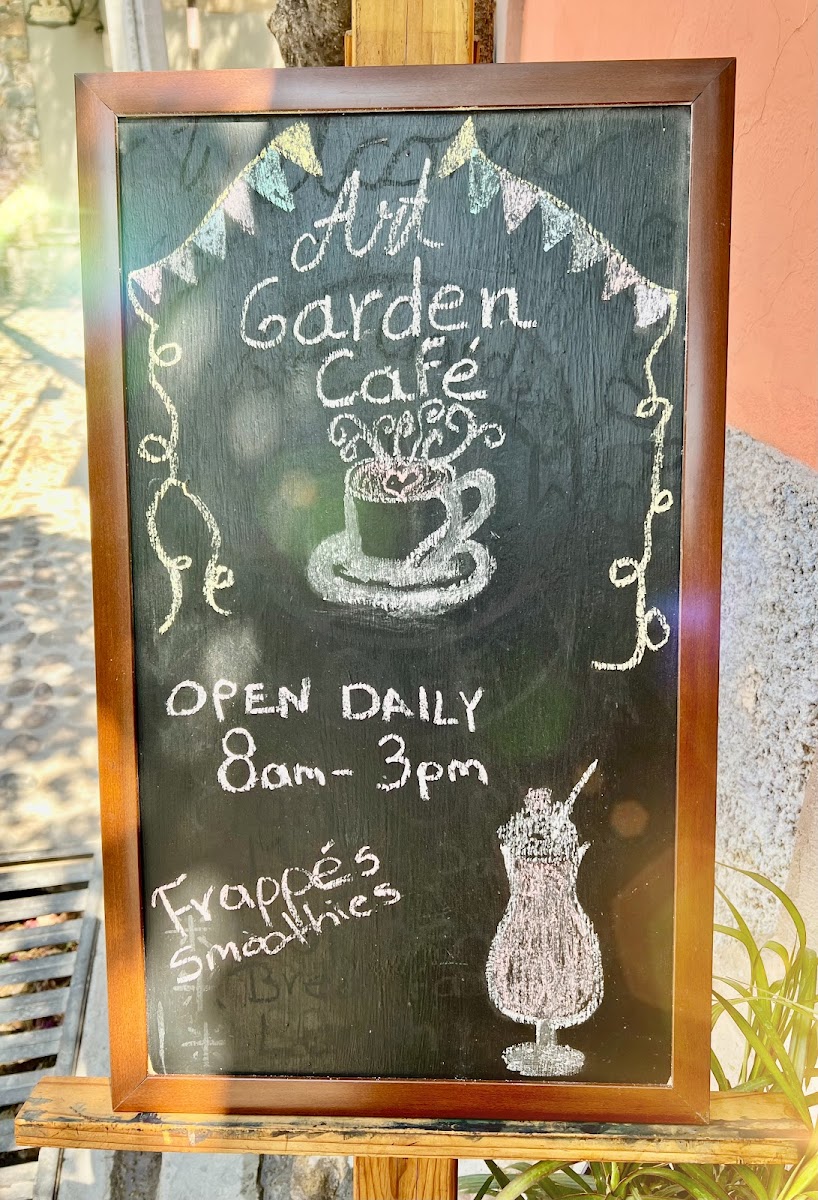 Art
Garden
Café
OPEN DAILY
8am - 3pm
Frappés
smoothies